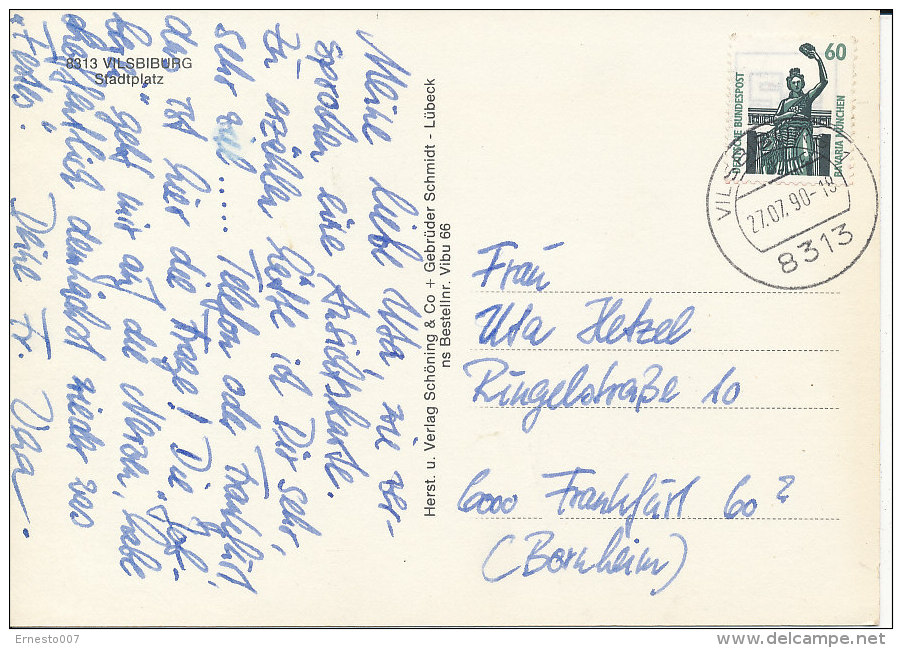 8313 VILSBIBURG
Stadtplatz
Meine liebe Uta, wie ver-
sprochen eine Ansichtskarte.
Zu erzählen hätte ich Dir sehr,
sehr viel .... Telefon oder Frankfurt,
das ist hier die Frage! Die
geht mir auf die Nerven, habe
hoffentlich demnächst wieder was
Deine Fr.
Herst. u. Verlag Schöning & Co + Gebrüder Schmidt - Lübeck
ns Bestellnr. Vibu 66
60
DEUTSCHE BUNDESPOST
BAVARIA MÜNCHEN
27.07.90-18
8313
Frau
Uta Hetzel
Ringelstraße 10
6000 Frankfurt 60
(Bornheim)
Ernesto007
www.delcampe.net